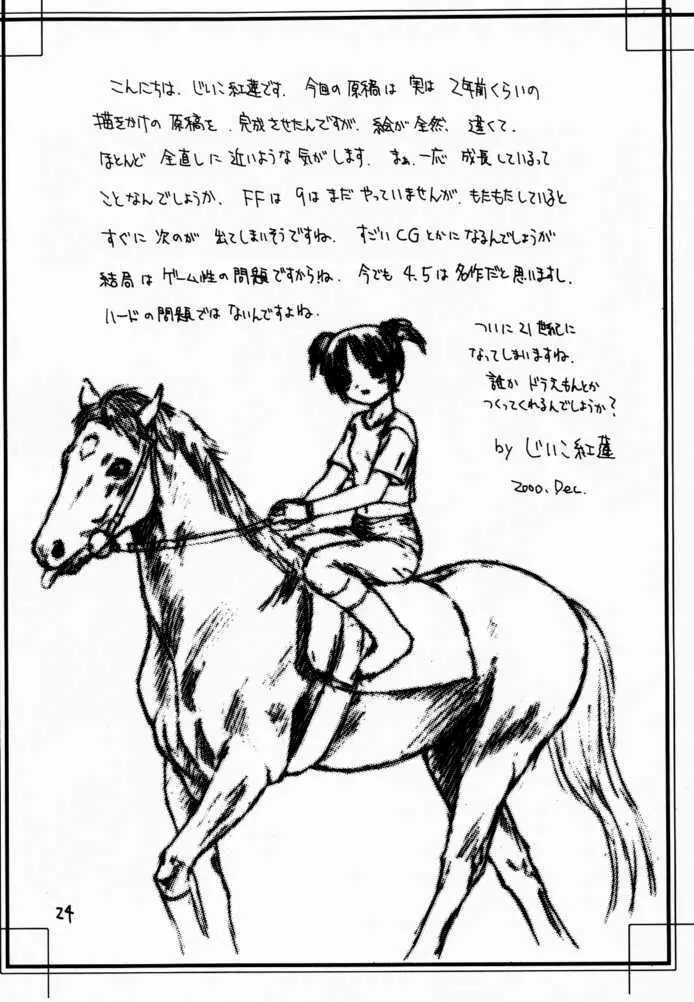 こんにちは、じいこ紅蓮です。今回の原稿は実は2年前くらいの
描きかけの原稿を、完成させたんですが、絵が全然、違くて、
ほとんど全直しに近いような気がします。まぁ、一応成長しているって
ことなんでしょうか。FFは9はまだやっていませんが、もたもたしていると
すぐに次のが出てしまいそうですね。すごいCGとかになるんでしょうが
結局はゲーム性の問題ですからね。今でも4、5は名作だと思いますし、
ハードの問題ではないんですよね。
ついに21世紀に
なってしまいますね。
誰かドラえもんとか
つくってくれるんでしょうか?
by じいこ紅蓮
2000.Dec.
24